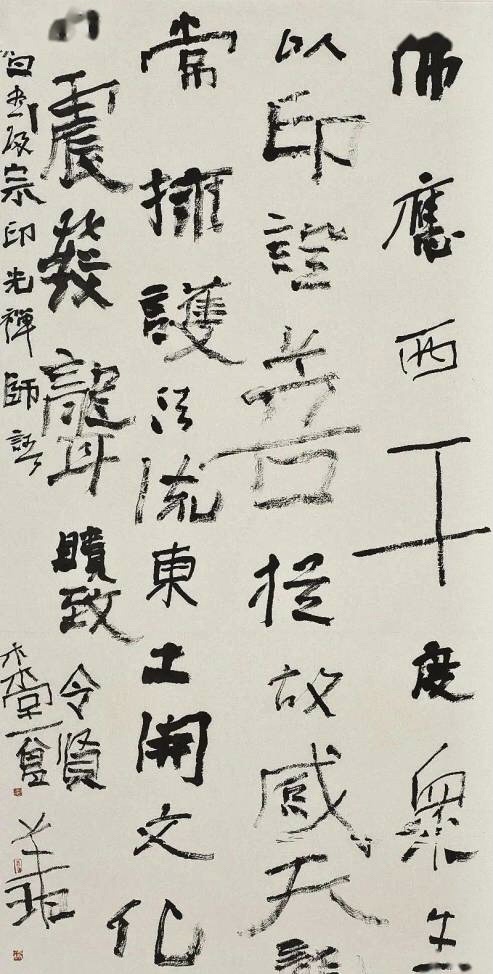 佛應西干度眾生
以印證菩提故感天龍
常擁護法流東土開文化
震發聾瞶致
令賢
宗印光禪師語